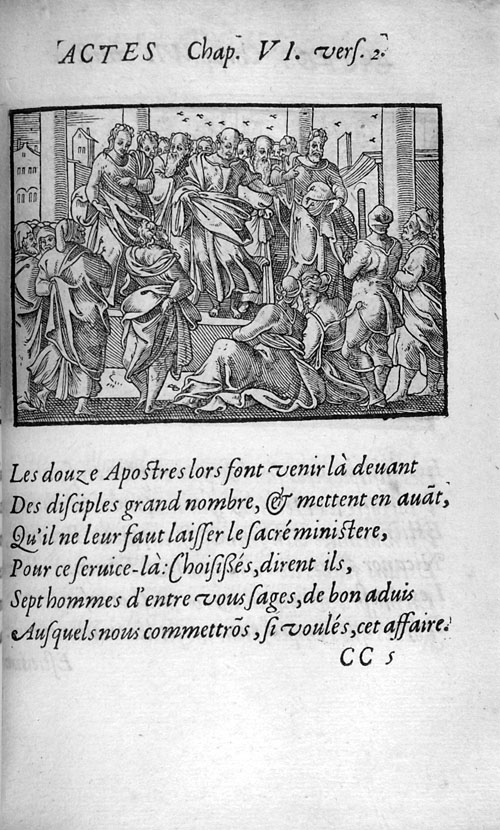 ACTES Chap. VI. verſ. 2.
Les douze Apoſtres lors font venir là deuant
Des diſciples grand nombre, & mettent en auāt,
Qu'il ne leur faut laiſſer le ſacré miniſtere,
Pour ce ſeruice-là: Choiſißés, dirent ils,
Sept hommes d'entre vous ſages, de bon aduis
Auſquels nous commettrõs, ſi voulés, cet affaire.
CC 5